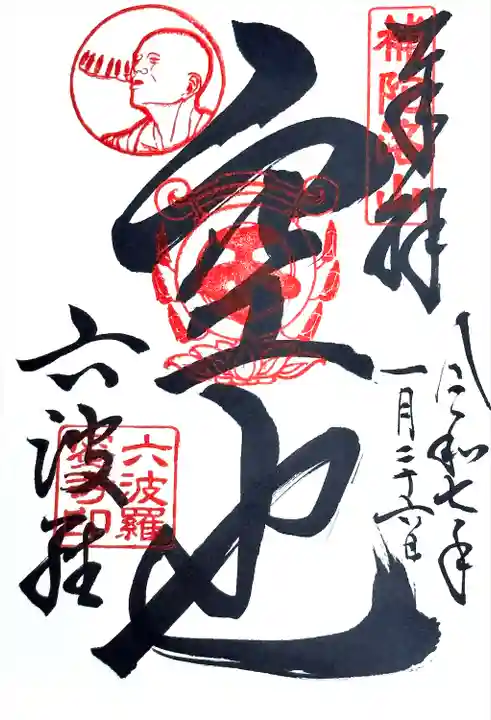 奉拝
補陀洛山
令和七年
一月二十六日
空也
六波羅
六波羅
密寺印